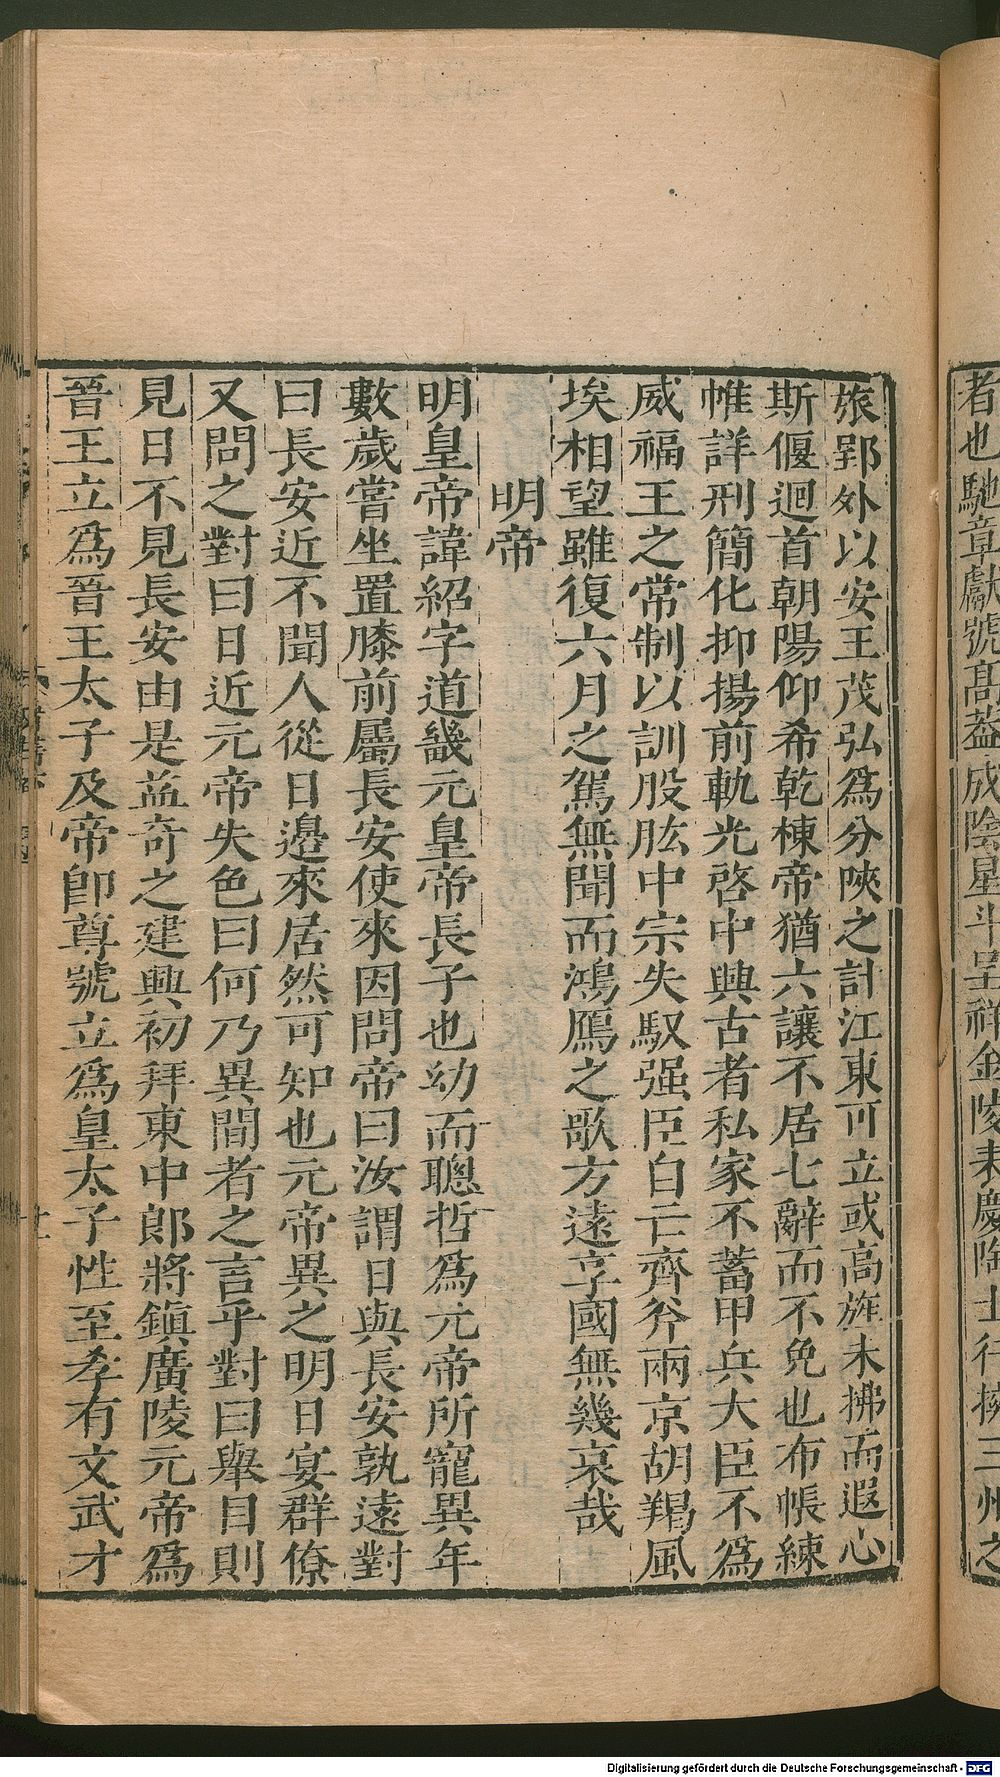 者也馳章獻號高蓋成陰星斗呈祥金陵表慶陶士行擁三州之
旅郢外以安王茂弘爲分陝之計江東可立或高旌未拂而遐心
斯偃迴首朝陽仰希乾棟帝猶六讓不居七辭而不免也布帳練
帷詳刑簡化抑揚前軌光啓中興古者私家不蓄甲兵大臣不爲
威福王之常制以訓股肱中宗失馭强臣自亡齊斧兩京胡羯風
埃相望雖復六月之駕無聞而鴻鴈之歌方遠享國無幾哀哉
明帝
明皇帝諱紹字道畿元皇帝長子也幼而聰哲爲元帝所寵異年
數歲嘗坐置膝前屬長安使來因問帝曰汝謂日與長安孰遠對
曰長安近不聞人從日邉來居然可知也元帝異之明日宴群僚
又問之對曰日近元帝失色曰何乃異間者之言乎對曰舉目則
見日不見長安由是益奇之建興初拜東中郎將鎭廣陵元帝爲
晉王立爲晉王太子及帝卽尊號立爲皇太子性至孝有文武才
Digitalisierung gefördert durch die Deutsche Forschungsgemeinschaft - DFG